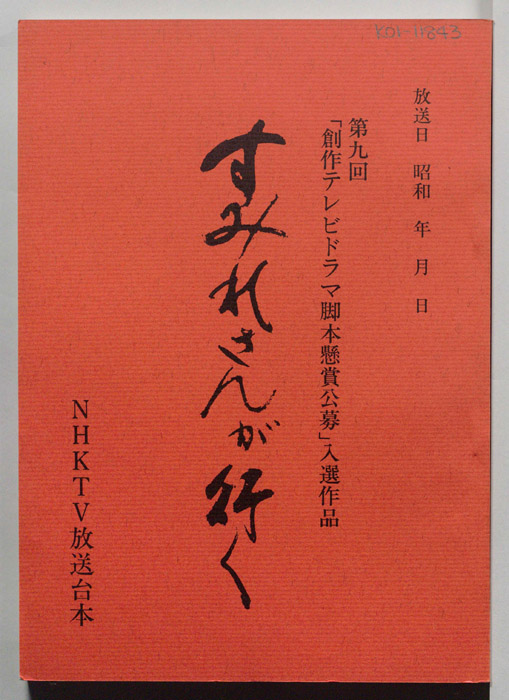 KD1-11843
放送日 昭和 年 月 日
第九回
「創作テレビドラマ脚本懸賞公募」入選作品
すみれさんが行く
NHKTV放送台本